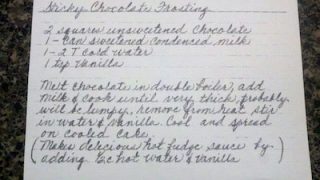 Sticky Chocolate Frosting
2 squares unsweetened chocolate
1 - can sweetened condensed milk
1 - 2 T cold water
1 tsp vanilla
Melt chocolate in double boiler, add
milk & cook until very thick, probably
will be lumpy, remove from heat stir
in water & vanilla. Cool and spread
on cooled cake.
(Makes delicious hot fudge sauce by
adding hot water & vanilla)